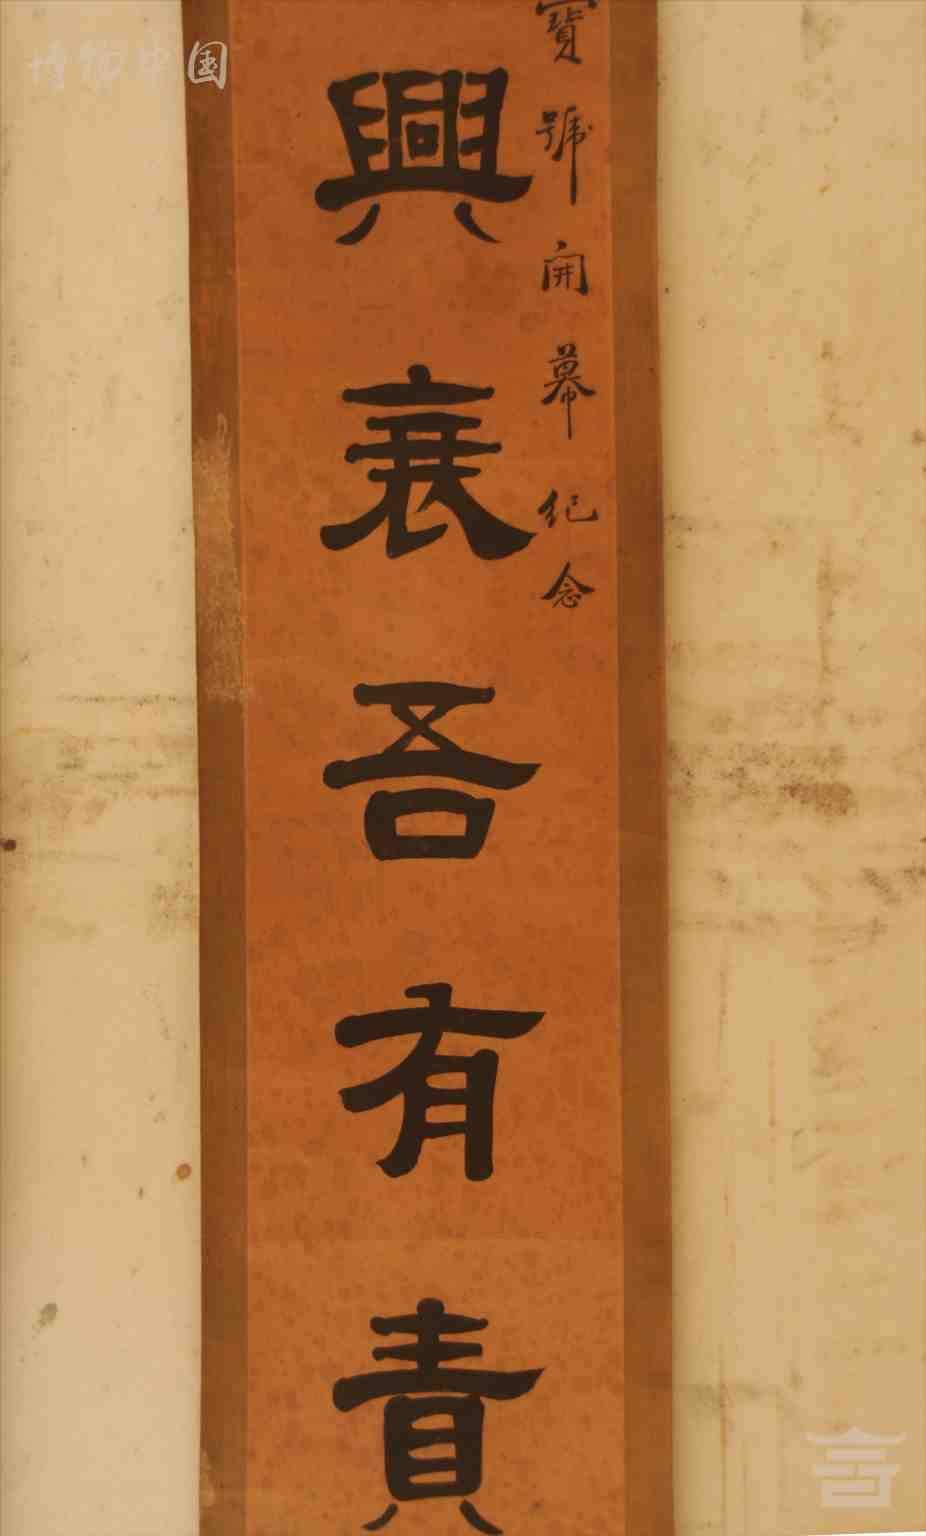 博物中国
寶號開幕紀念
興衰吾有責